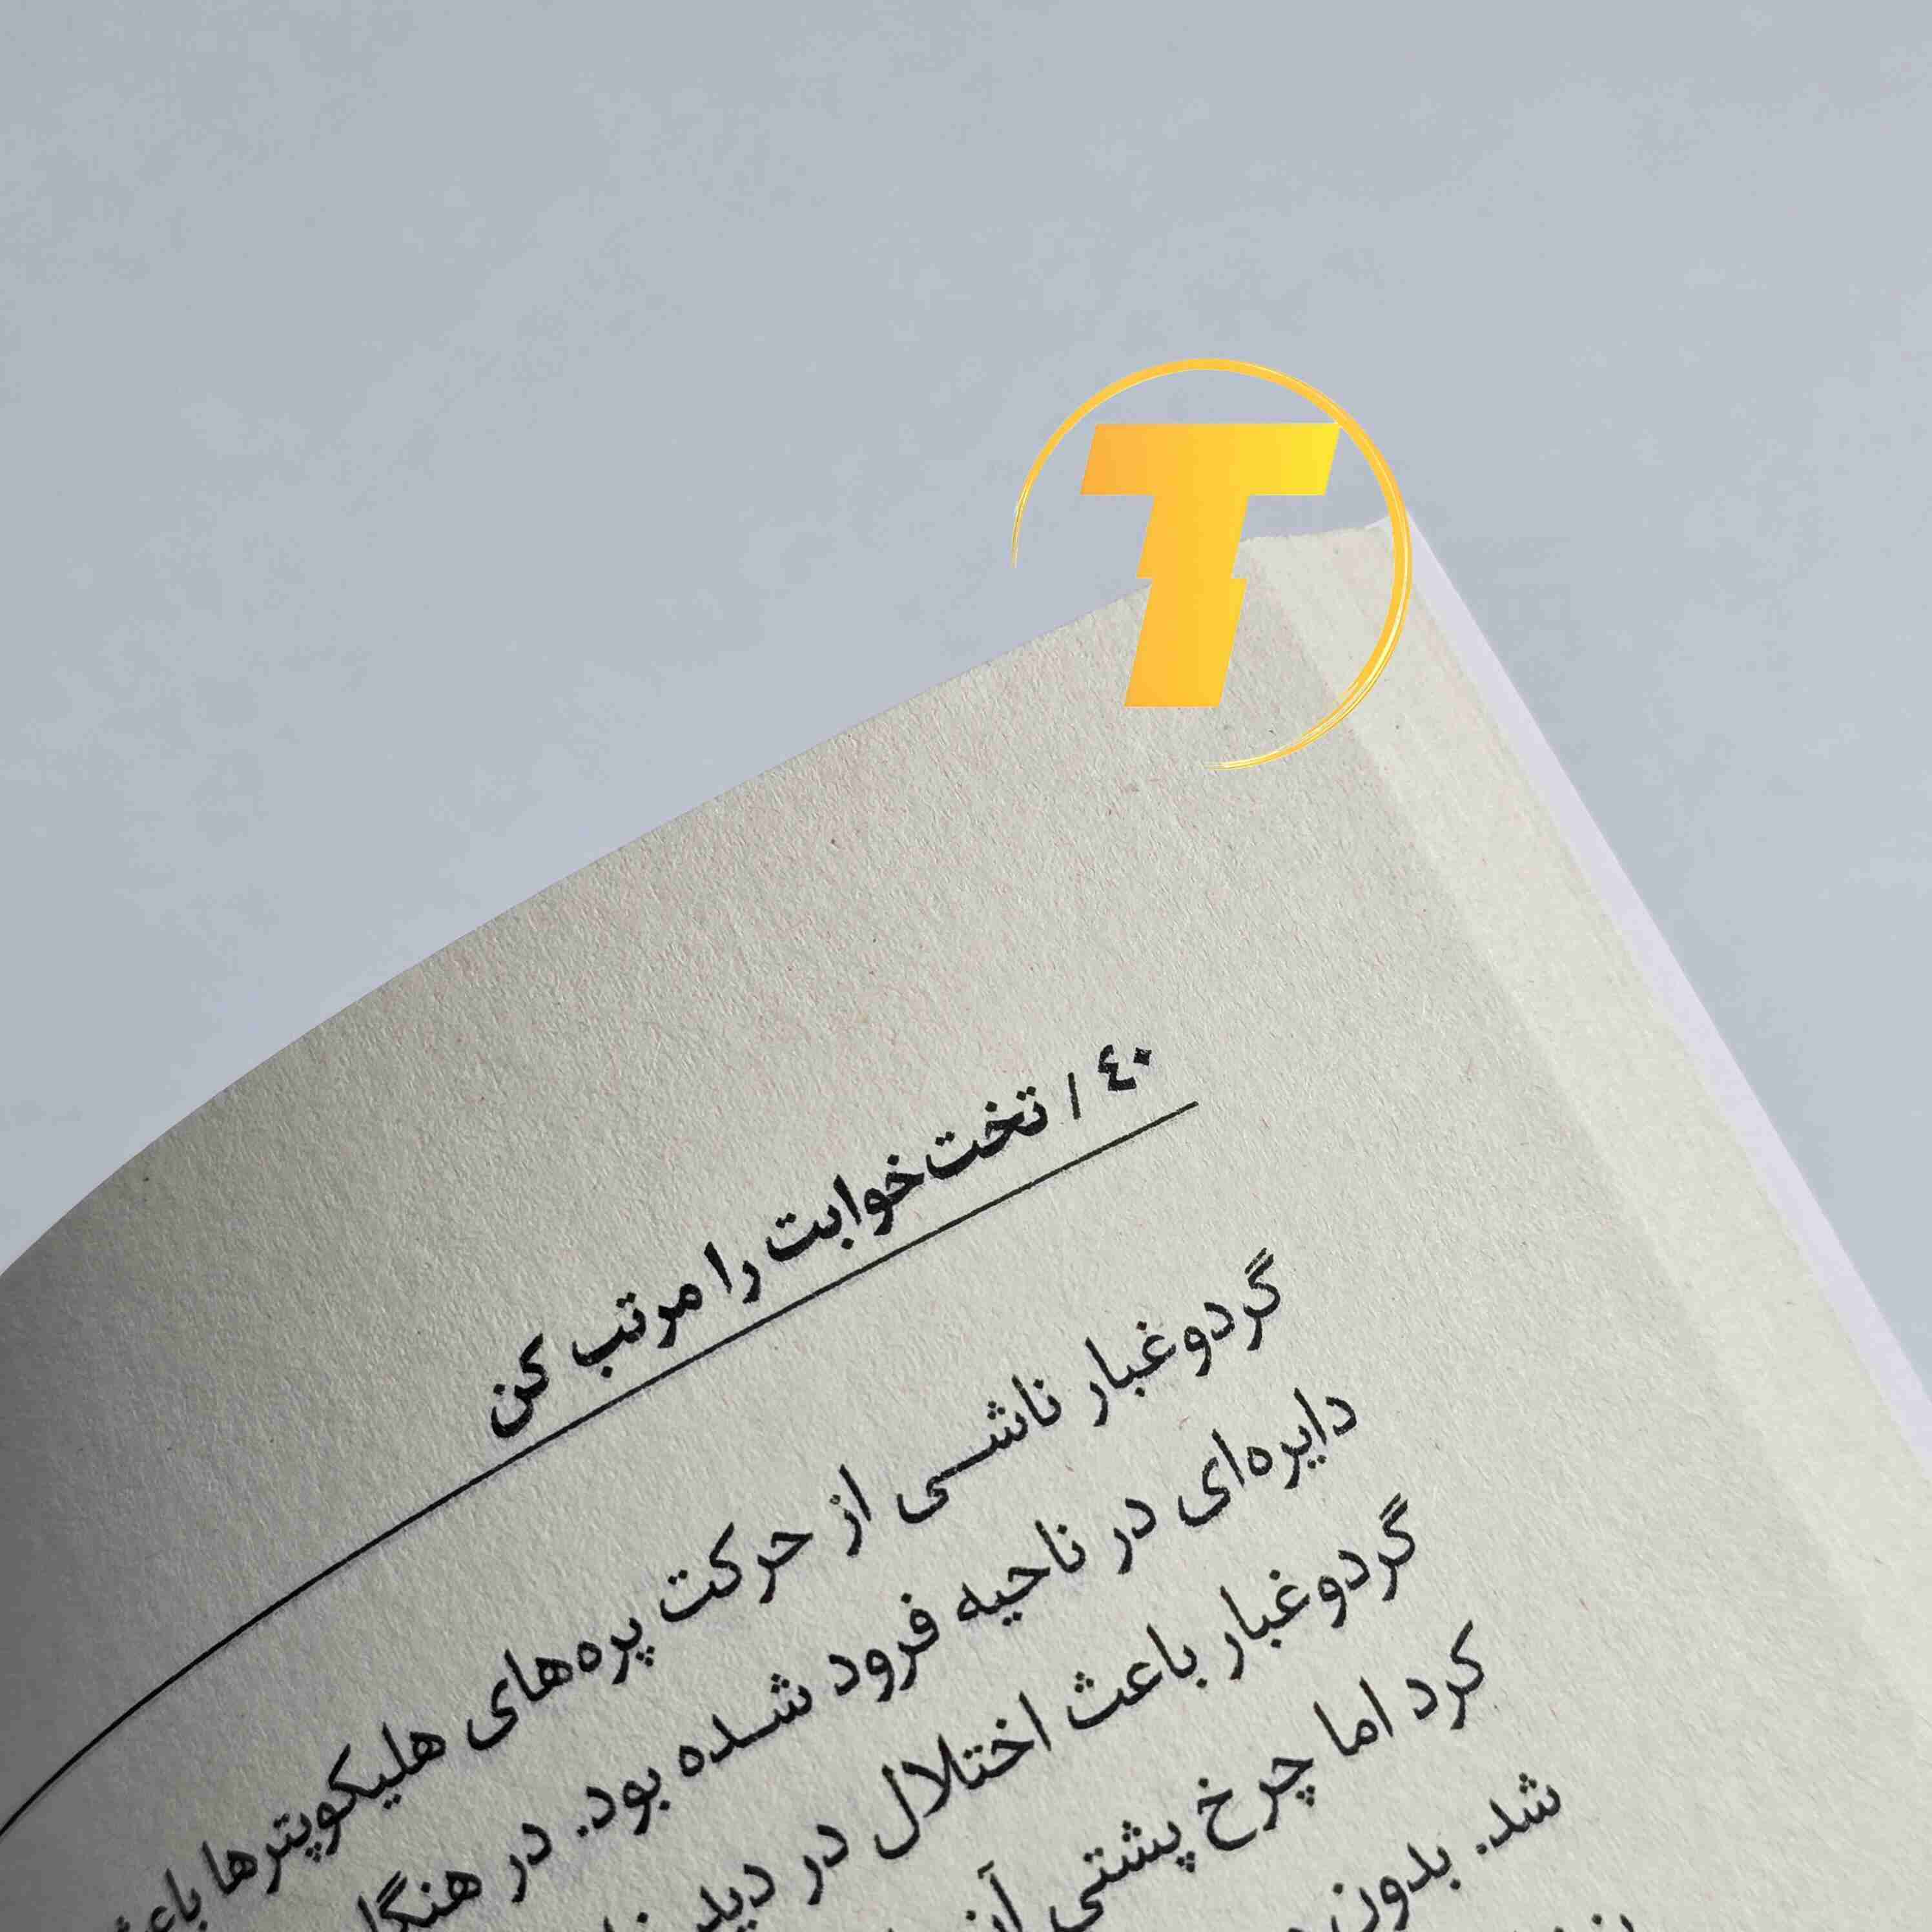 T
٤٠ / تخت‌خوابت را مرتب کن
گردوغبار ناشی از حرکت پره‌های هلیکوپترها
دایره‌ای در ناحیه فرود شده بود. در
گردوغبار باعث اختلال در دید
کرد اما چرخ پشتی
شد. بدون